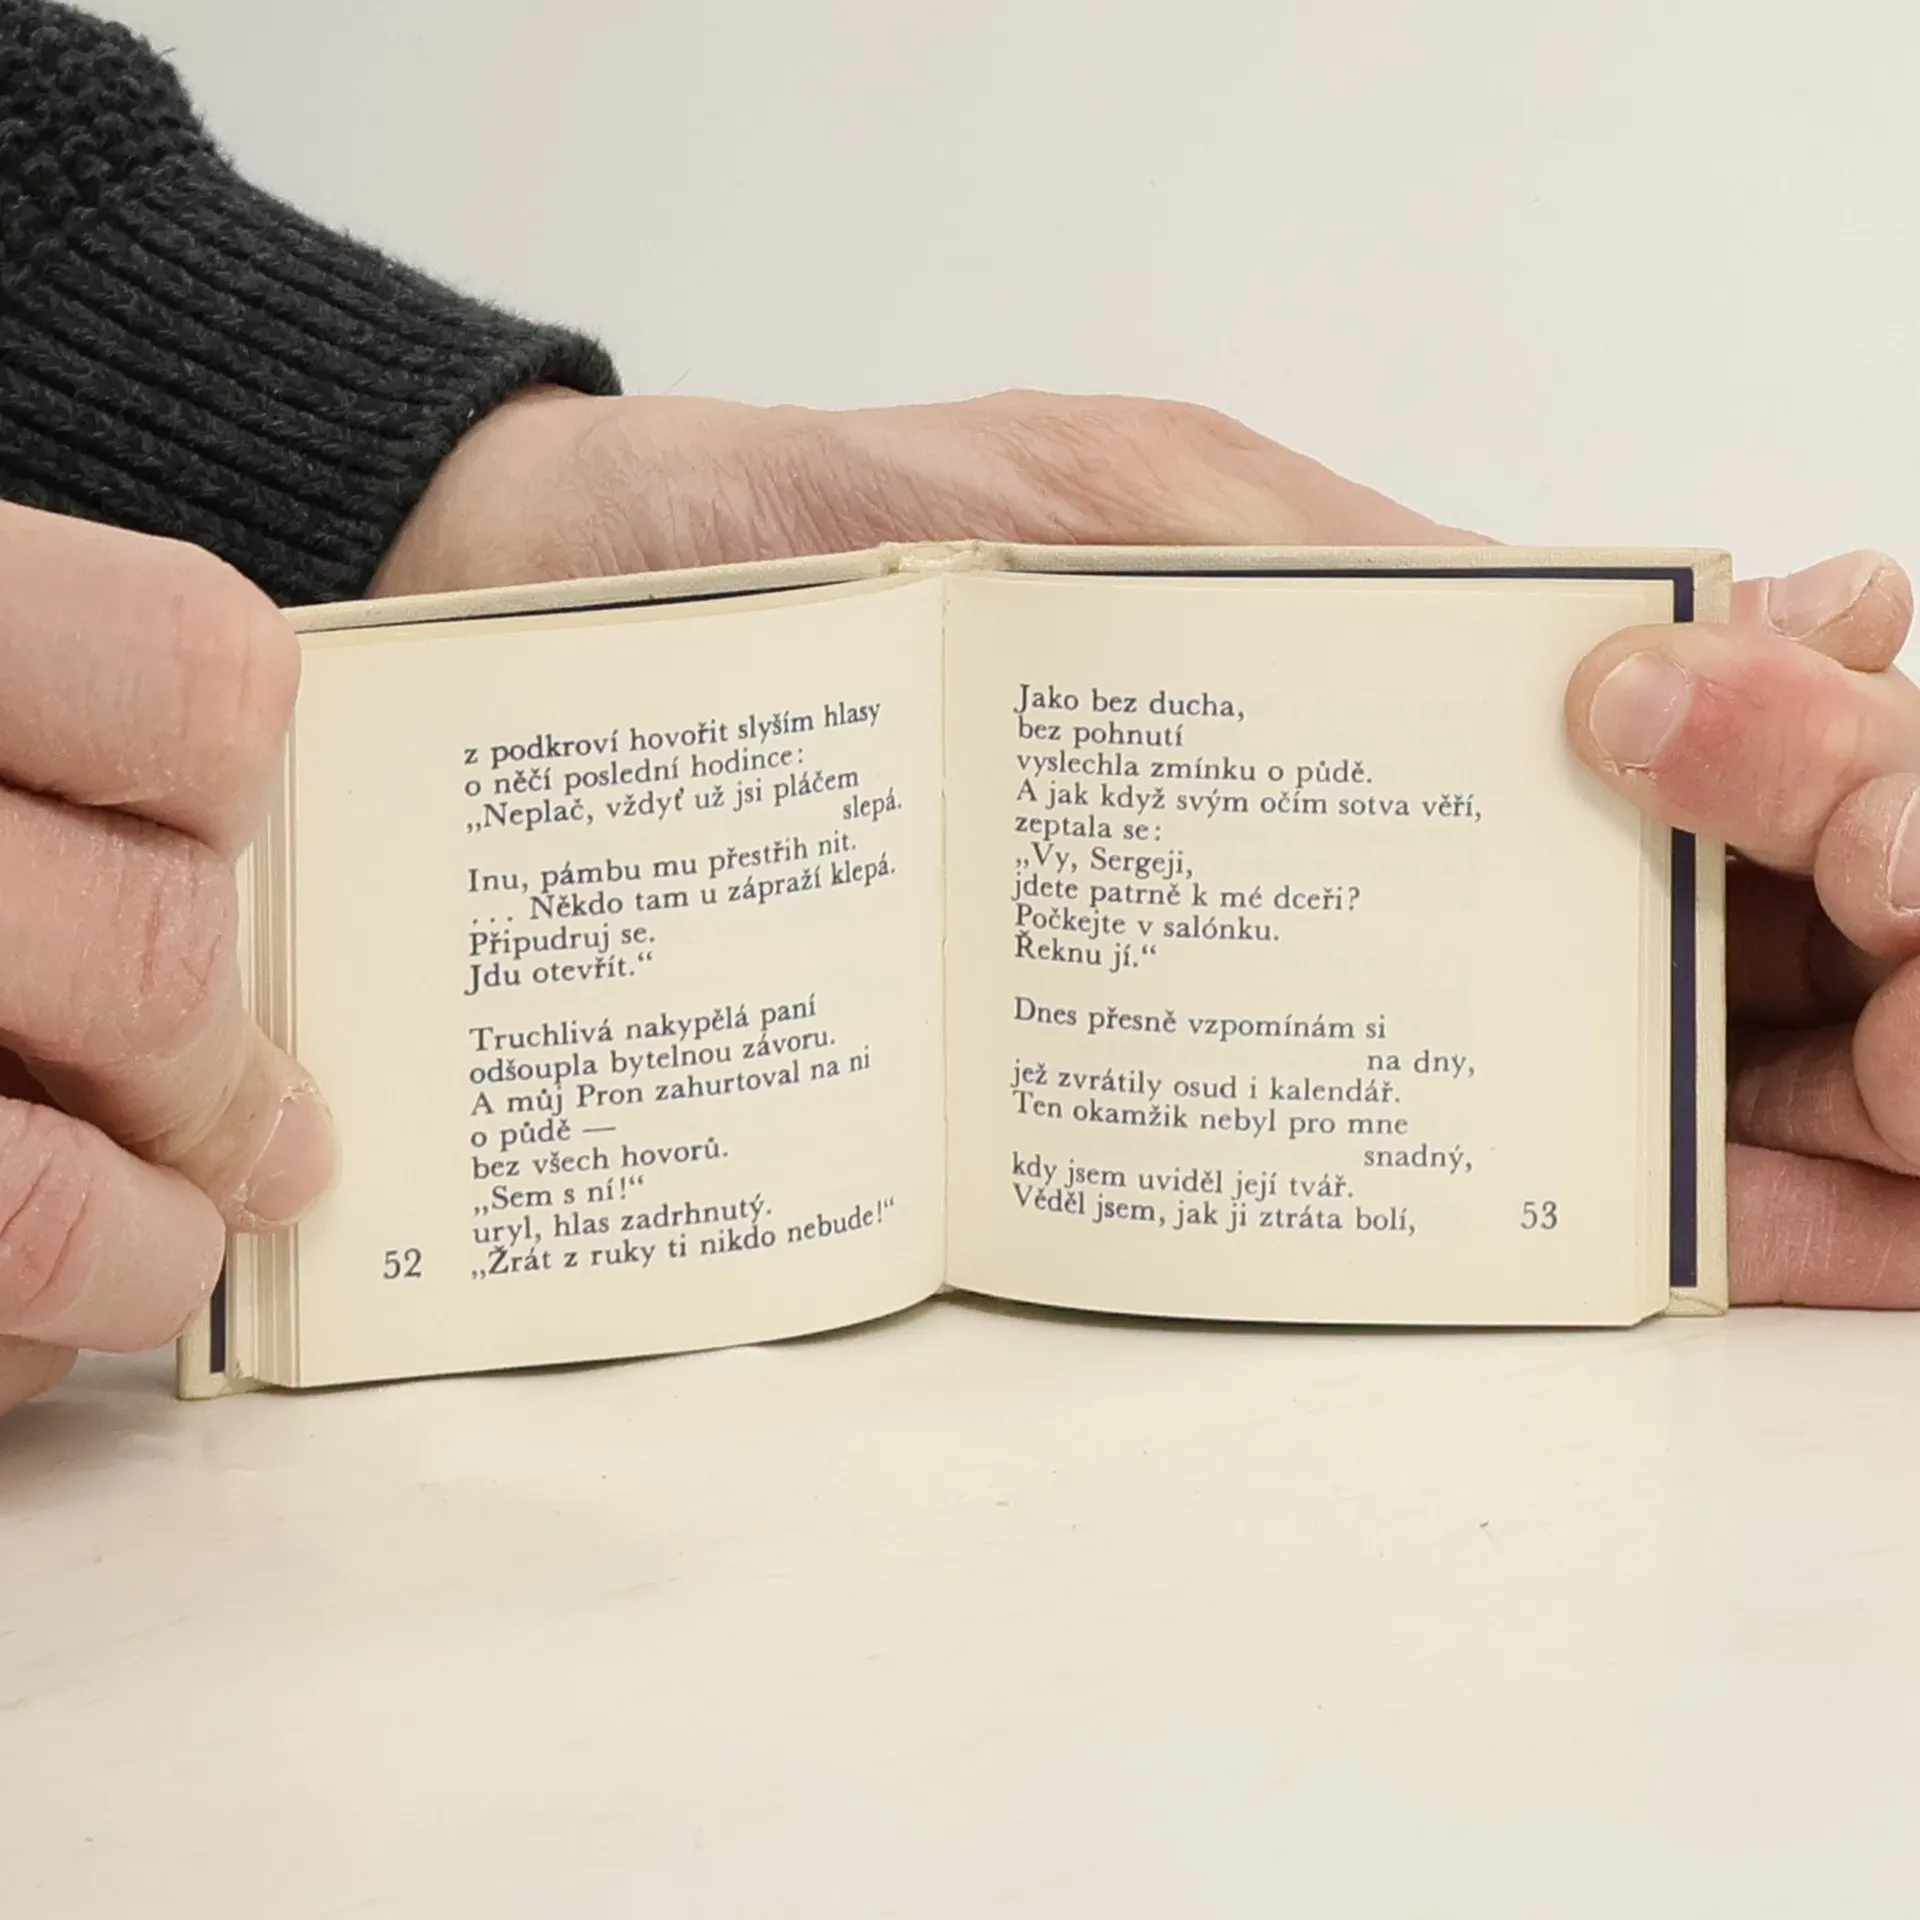 z podkroví hovořit slyším hlasy
o něčí poslední hodince:
„Neplač, vždyť už jsi pláčem
slepá.
Inu, pámbu mu přestřih nit.
... Někdo tam u zápraží klepá.
Připudruj se.
Jdu otevřít.“
Truchlivá nakypělá paní
odšoupla bytelnou závoru.
A můj Pron zahurtoval na ni
o půdě —
bez všech hovorů.
„Sem s ní!“
uryl, hlas zadrhnutý.
„Žrát z ruky ti nikdo nebude!“
52
Jako bez ducha,
bez pohnutí
vyslechla zmínku o půdě.
A jak když svým očím sotva věří,
zeptala se:
„Vy, Sergeji,
jdete patrně k mé dceři?
Počkejte v salónku.
Řeknu jí.“
Dnes přesně vzpomínám si
na dny,
jež zvrátily osud i kalendář.
Ten okamžik nebyl pro mne
snadný,
kdy jsem uviděl její tvář.
Věděl jsem, jak ji ztráta bolí,
53